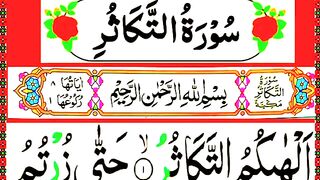 سُوْرَةُ التَّكَاثُرِ
سُوْرَةُ التَّكَاثُرِ مَكِّيَّةٌ
بِسْمِ اللهِ الرَّحْمٰنِ الرَّحِيْمِ
اٰيَاتُهَا ٨
رُكُوْعُهَا ١
اَلْهٰىكُمُ التَّكَاثُرُ ۙ﴿۱﴾ حَتّٰى زُرْتُمُ